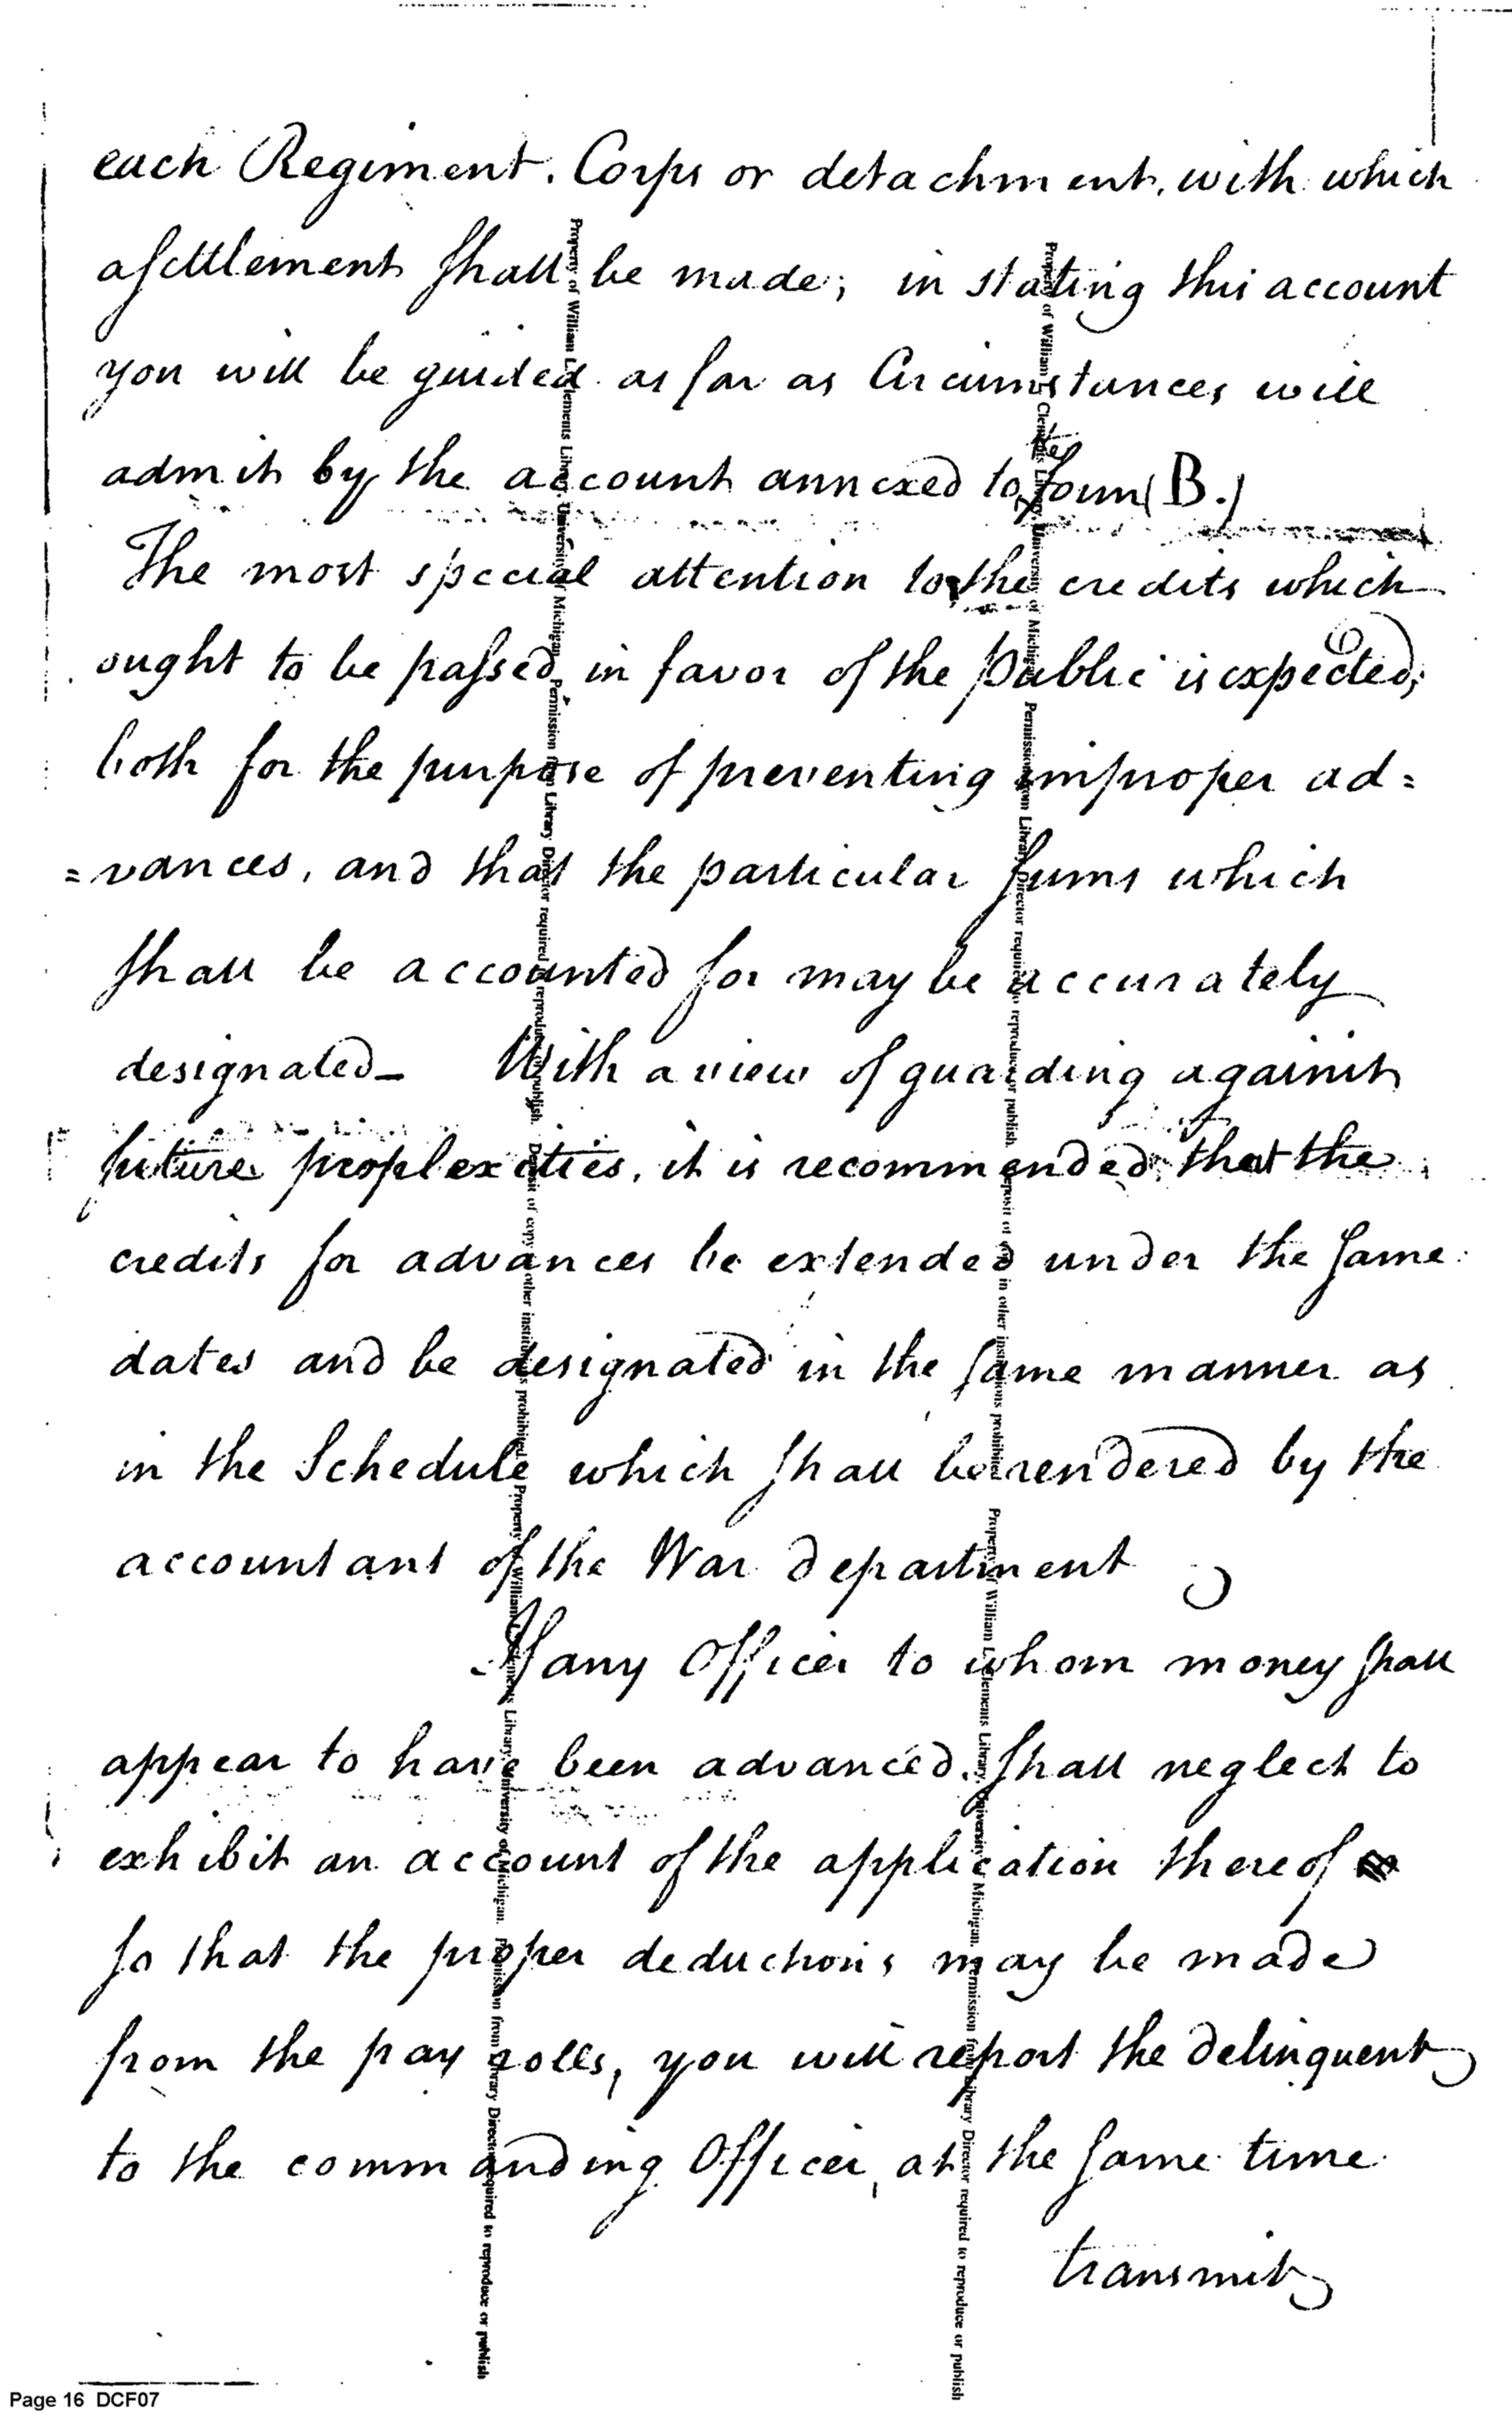 each Regiment. Corps or detachment, with which
a settlement shall be made; in stating this account
you will be guided as far as Circumstances will
admit by the account annexed to the form (B.)
The most special attention to the credits which
ought to be passed in favor of the public is expected,
both for the purpose of preventing improper ad=
=vances, and that the particular sums which
shall be accounted for may be accurately
designated_ With a view of guarding against
future proplexities, it is recommended, that the
credits for advances be extended under the same
dates and be designated in the same manner as
in the Schedule which shall be rendered by the
accountant of the War department
If any Officer to whom money shall
appear to have been advanced, shall neglect to
exhibit an account of the application thereof
so that the proper deductions may be made
from the pay rolls, you will report the delinquent
to the commanding Officer, at the same time
transmit
Property of William L. Clements Library, University of Michigan. Permission from Library Director required to reproduce or publish. Deposit of copy in other institutions prohibited
Property of William L. Clements Library, University of Michigan. Permission from Library Director required to reproduce or publish
Property of William L. Clements Library, University of Michigan. Permission from Library Director required to reproduce or publish. Deposit of copy in other institutions prohibited
Property of William L. Clements Library, University of Michigan. Permission from Library Director required to reproduce or publish
Page 16 DCF07